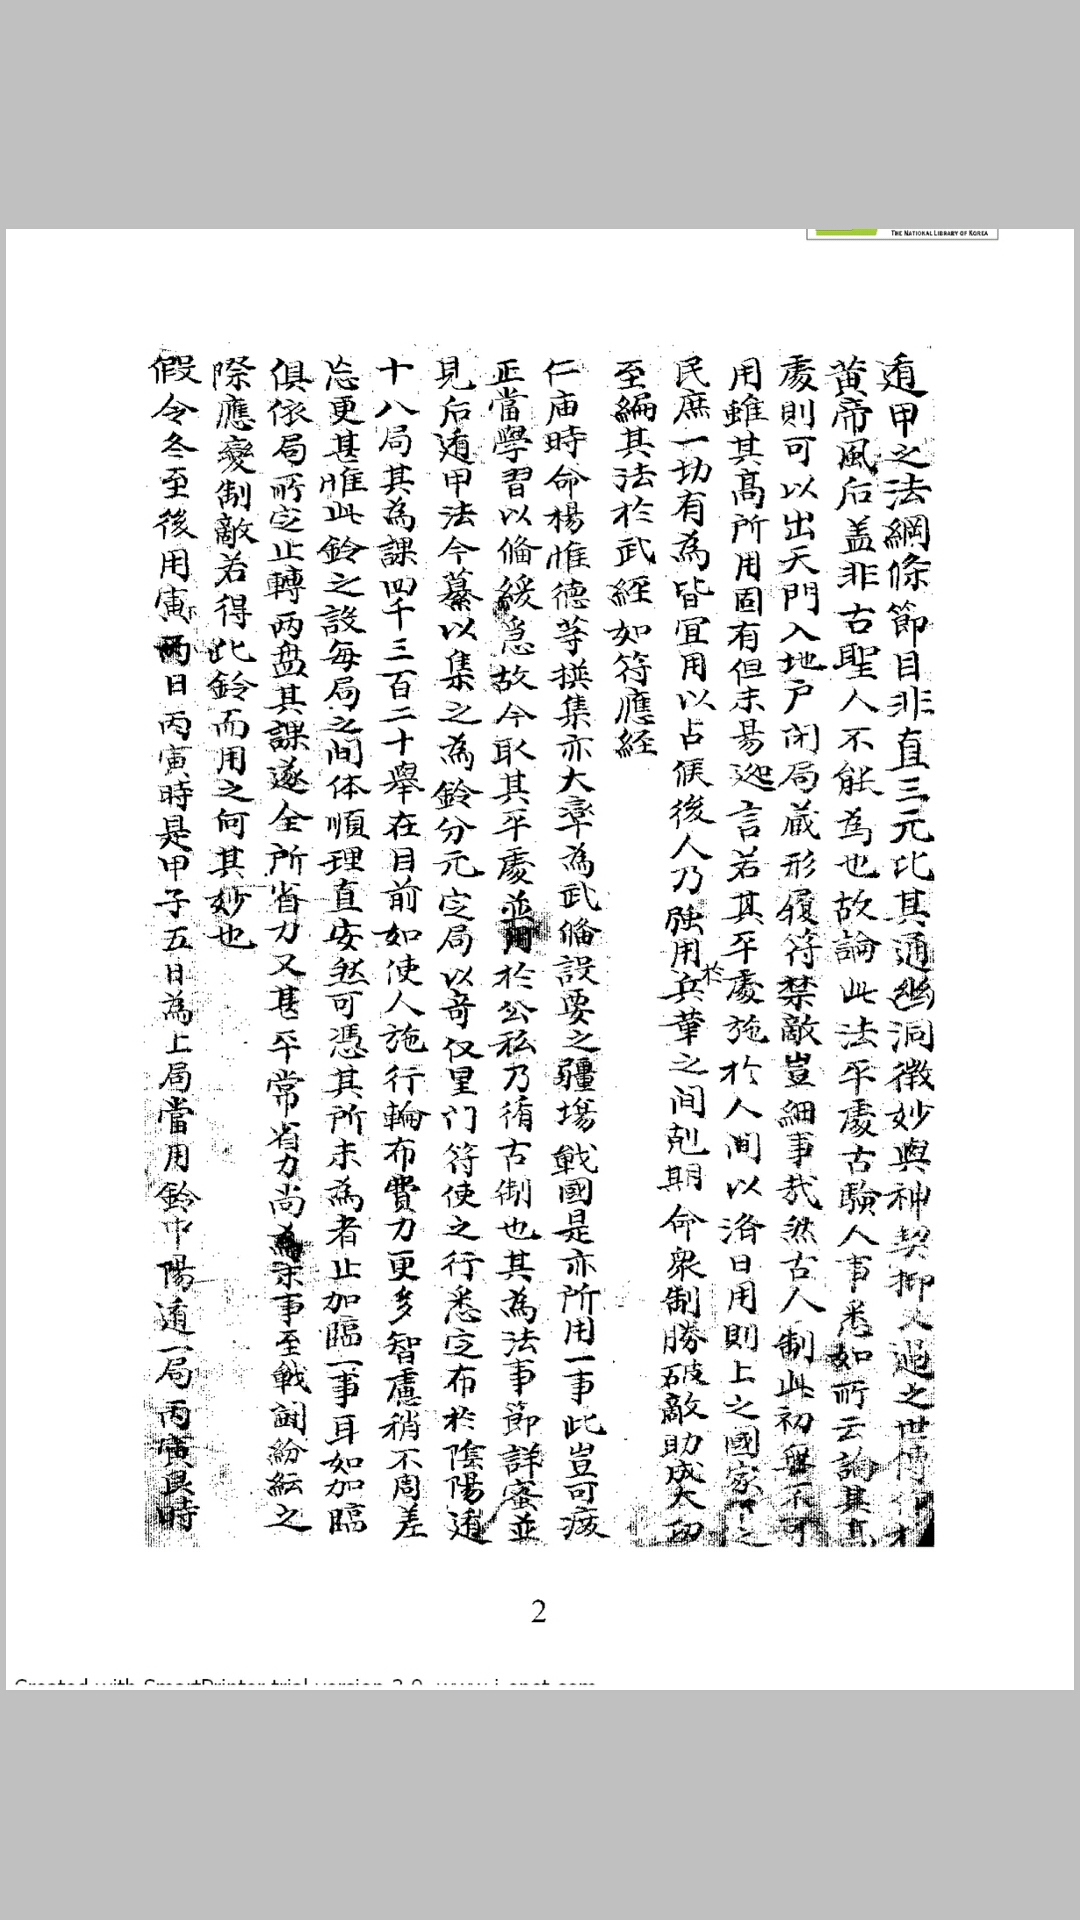 THE NATIONAL LIBRARY OF KOREA
遁甲之法綱條節目非直三元比其通幽洞徴妙與神契抑人過之世傳
黄帝風后盖非古聖人不能為也故論此法平處古驗人事悉如所云論其髙
處則可以出天門入地户闭局蔵形履符禁敵豈細事㢤然古人制此初豈不可
用雖其髙所用固有但未易遽言若其平處施於人间以洛日用則上之國家下之
民庶一切有為皆冝用以占候後人乃强用於兵革之间剋期命衆制勝破敵助成大功
至編其法於武經如符應経
仁庙時命楊惟徳等撰集亦大率為武俻設要之疆埸戰國是亦所用一事此豈可癈
正當學習以俻緩急故今取其平處並用於公私乃循古制也其為法事節詳蜜並
見后遁甲法今纂以集之為鈴分元定局以竒仪星门符使之行悉定布於隂陽遁
十八局其為課四千三百二十舉在目前如使人施行輪布費力更多智慮稍不周差
忘更甚惟此鈴之設每局之间体順理直安然可憑其所未為者止加臨一事耳如加臨
俱依局所定止轉两盘其課遂全所省力又甚平常省力尚為末事至戰鬭紛紜之
際應變制敵若得此鈴而用之何其妙也
假令冬至後用寅丙日丙寅時是甲子五日為上局當用鈴中陽遁一局丙寅具時
2
Created with SmartPrinter trial version